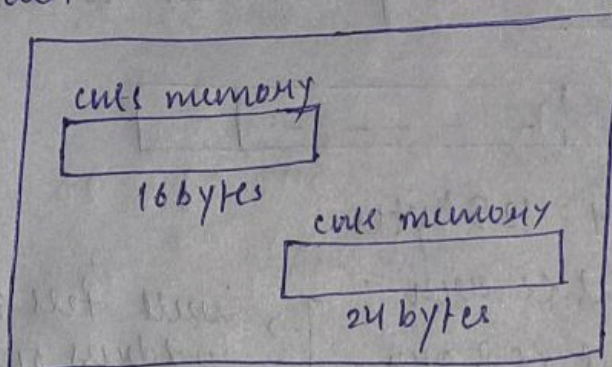 cuts memory
16 bytes
cuts memory
24 bytes